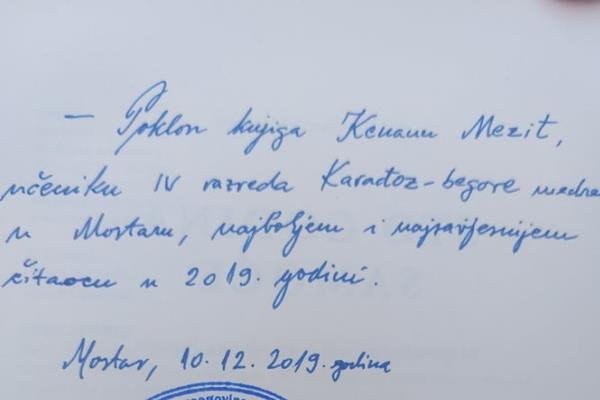 — Poklon knjiga Kenanu Mezit,
učeniku IV razreda Karađoz-begove medre
u Mostaru, najboljem i najsavjesnijem
čitaocu u 2019. godini.
Mostar, 10.12.2019. godina